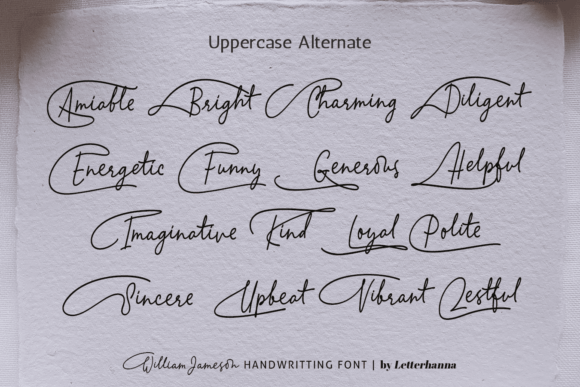 Uppercase Alternate
Amiable Bright Charming Diligent
Energetic Funny Generous Helpful
Imaginative Kind Loyal Polite
Sincere Upbeat Vibrant Zestful
William Jameson HANDWRITTING FONT | by Letterhanna